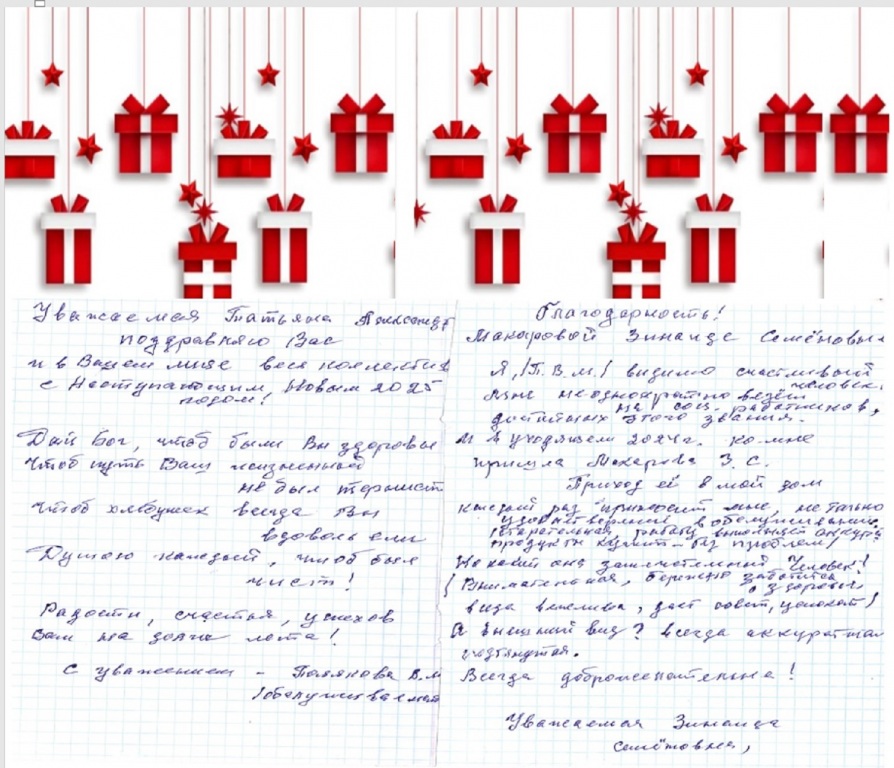 Уважаемая Татьяна Александр
поздравляю Вас
и в Вашем лице весь коллектив
с Наступающим Новым 2025
годом!
Дай Бог, чтоб были Вы здоровы
Чтоб путь Ваш жизненный
не был тернист
Чтоб хлебушек всегда Вы
вдоволь ели
Душою каждый, чтоб был
чист!
Радости, счастья, успехов
Вам на долгие лета!
С уважением - Полякова В.М
/обслуживаемая
Благодарность!
Макаровой Зинаиде Семёновне
Я, /П.В.М./ видимо счастливый
человек.
Мне неоднократно везёт
на соц. работников,
достойных этого звания.
И в уходящем 2024г. ко мне
пришла Макарова З. С.
Приход её в мой дом
каждый раз приносит мне, не только
удовлетворение в обслуживании
продукты купит - без проблем/
Но какой она замечательный Человек!
(Внимательная, бережно заботится
о здоровье,
вида вежлива, даст совет, успокоит)
А внешний вид? всегда аккуратная
подтянутая.
Всегда доброжелательна!
Уважаемая Зинаида
Семёновна,